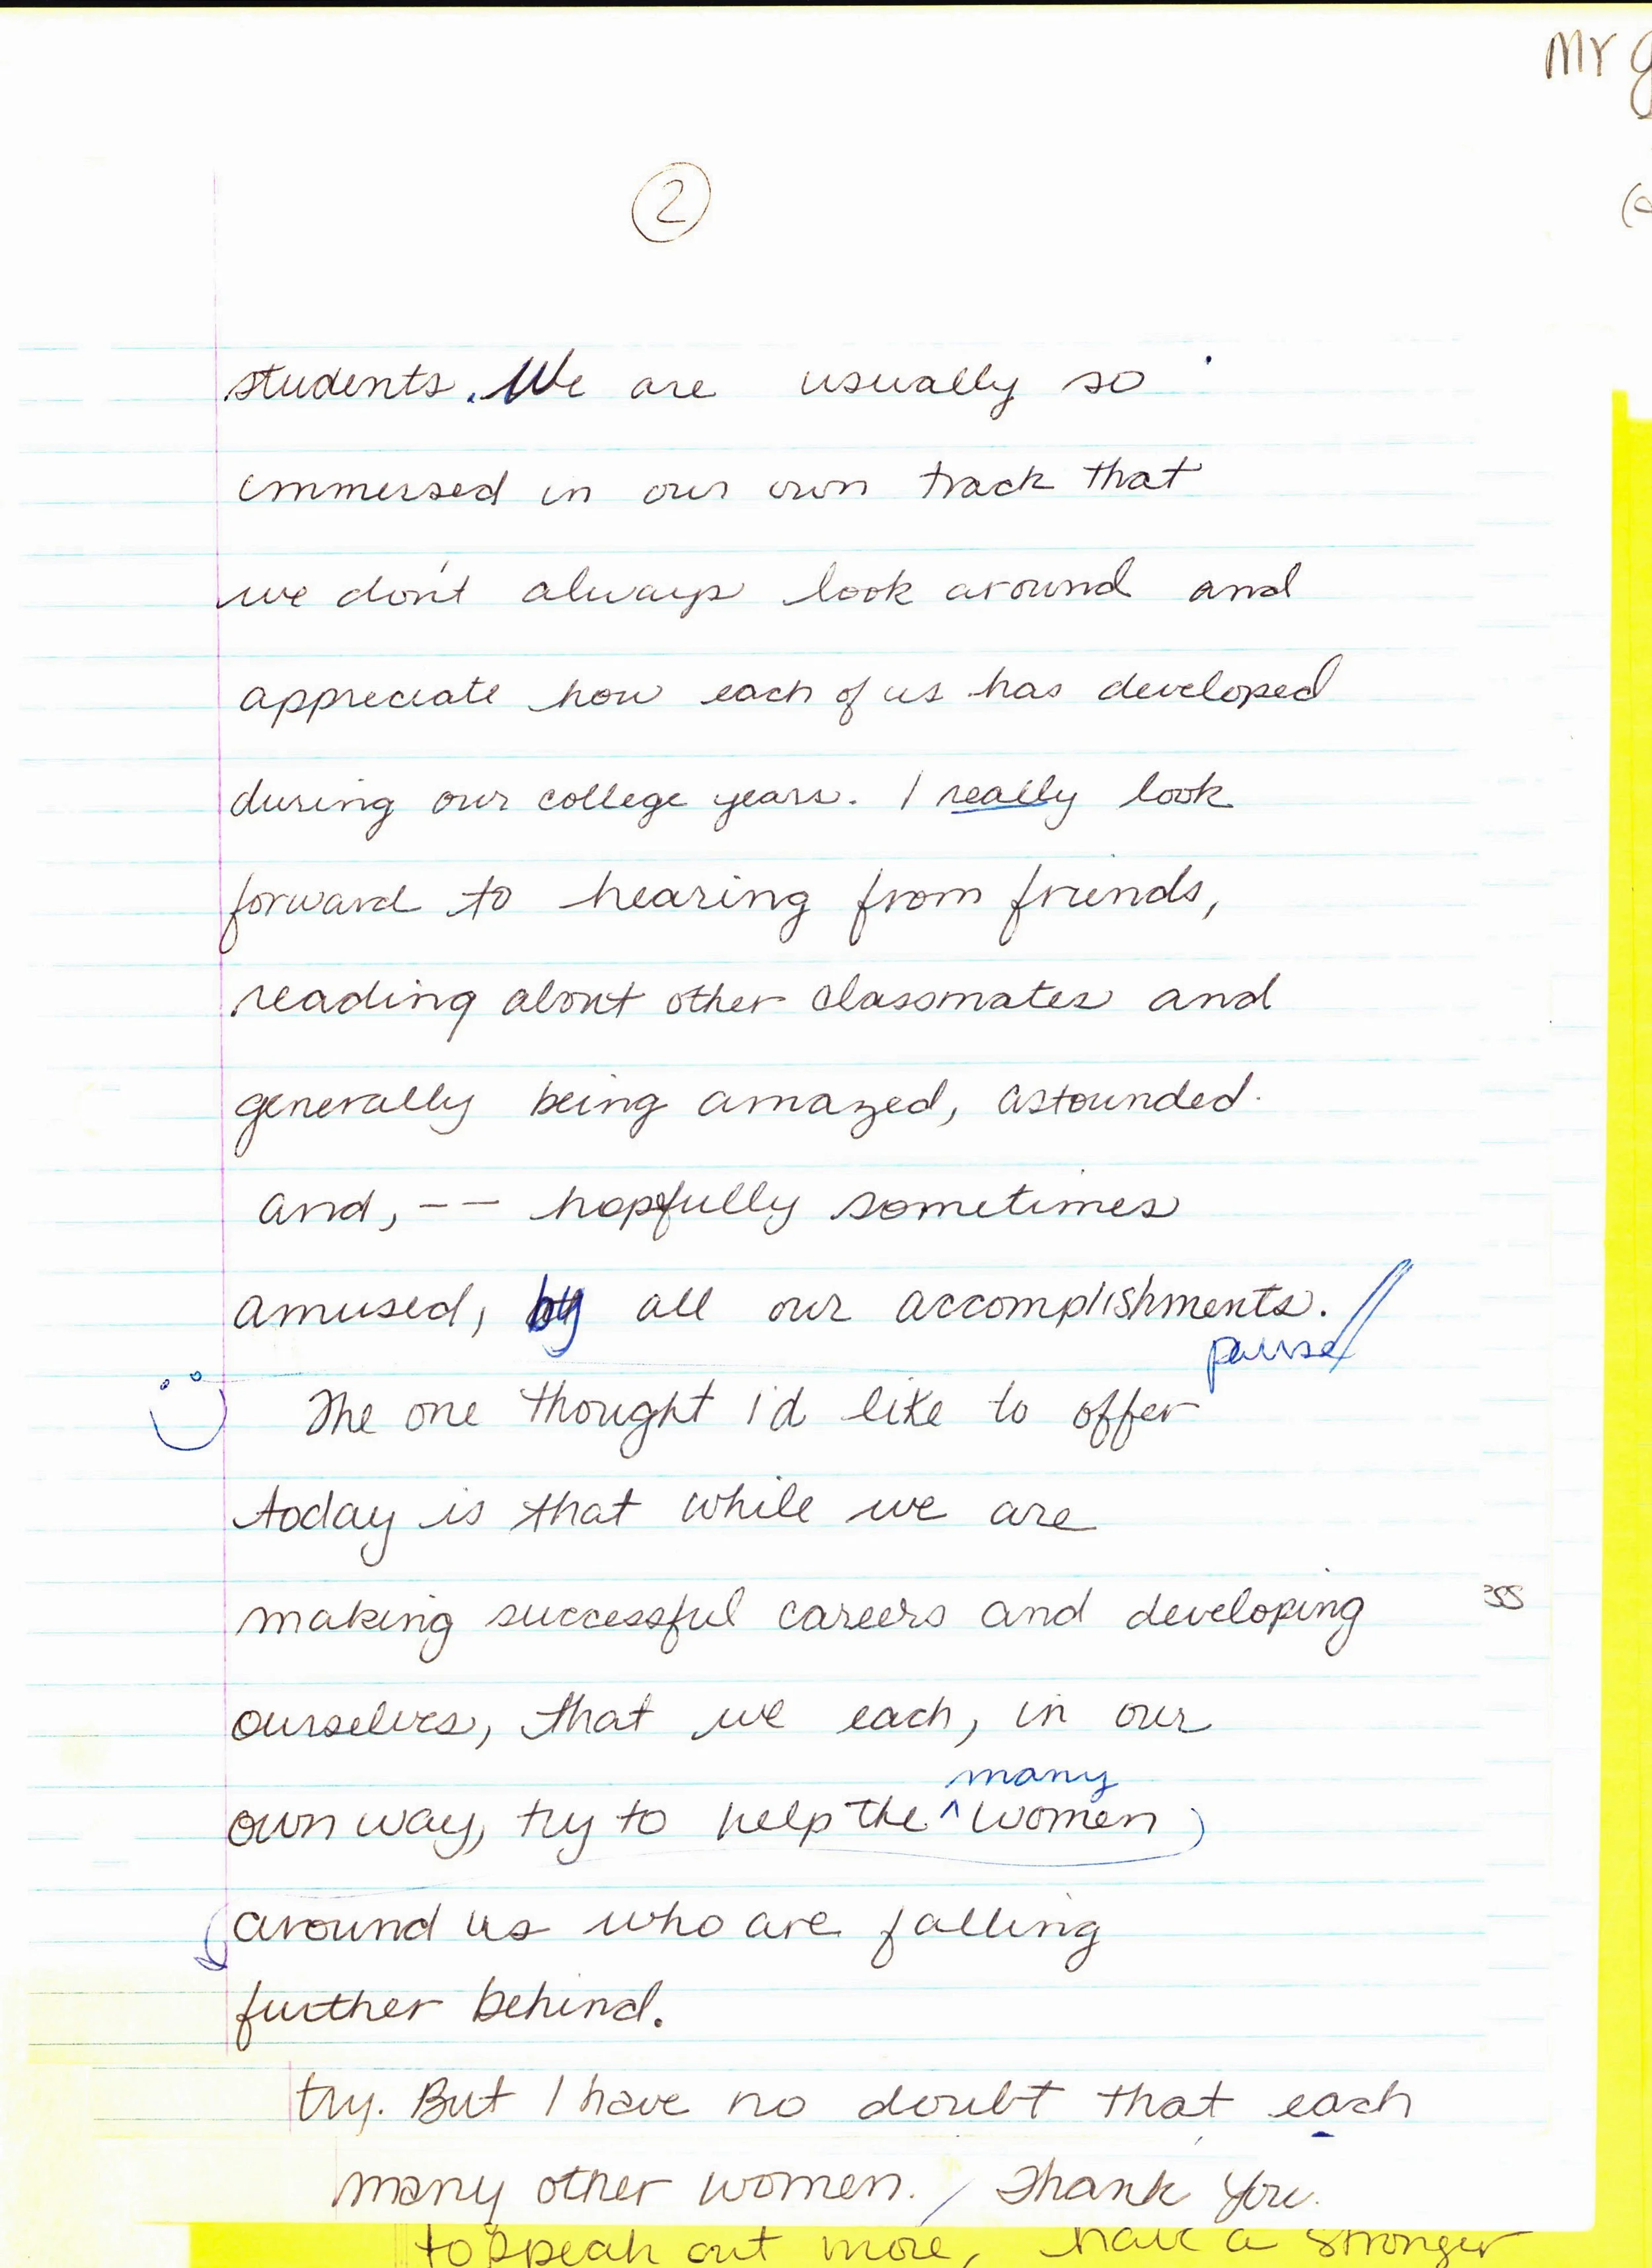 Mr
2
students. We are usually so
immersed in our own track that
we don't always look around and
appreciate how each of us has developed
during our college years. I really look
forward to hearing from friends,
reading about other classmates and
generally being amazed, astounded
and, -- hopfully sometimes
amused, by all our accomplishments.
pause
The one thought I'd like to offer
today is that while we are
making successful careers and developing
ourselves, that we each, in our
many
own way, try to help the ^ women
around us who are falling
further behind.
try. But I have no doubt that each
many other women. / Thank you.
to speak out more, have a stronger